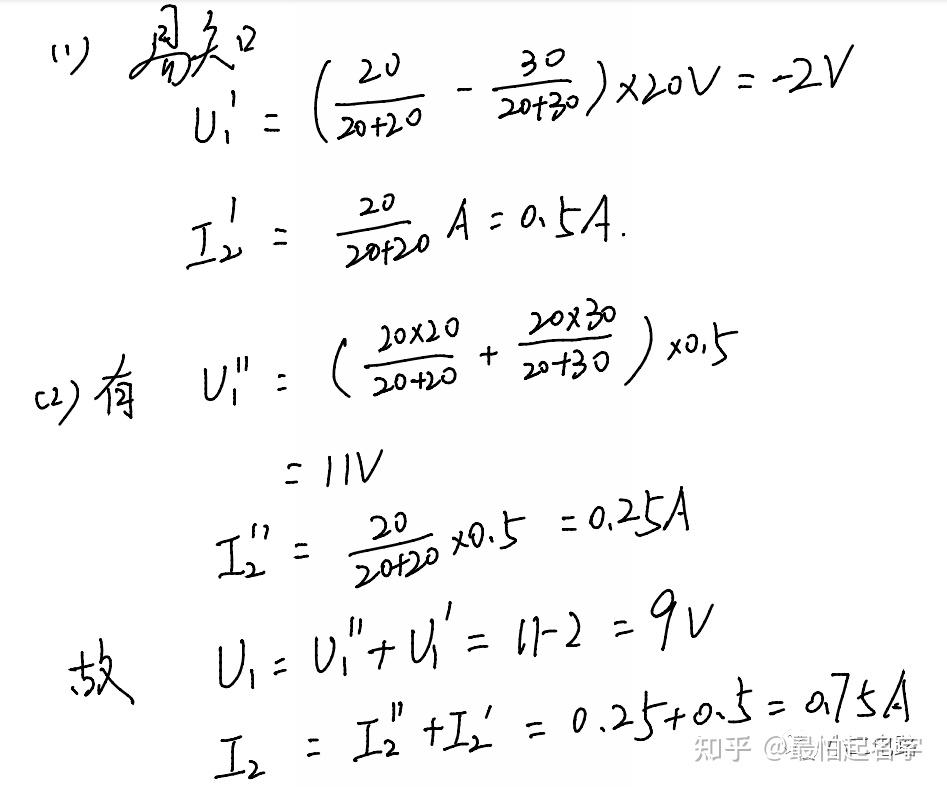 (1) 易知
U₁' = (20/(20+20) - 30/(20+30)) × 20V = -2V
I₂' = 20/(20+20) A = 0.5A.
(2) 有 U₁'' = (20×20/(20+20) + 20×30/(20+30)) × 0.5
= 11V
I₂'' = 20/(20+20) × 0.5 = 0.25A
故 U₁ = U₁'' + U₁' = 11-2 = 9V
I₂ = I₂'' + I₂' = 0.25+0.5 = 0.75A
知乎 @最怕起名字